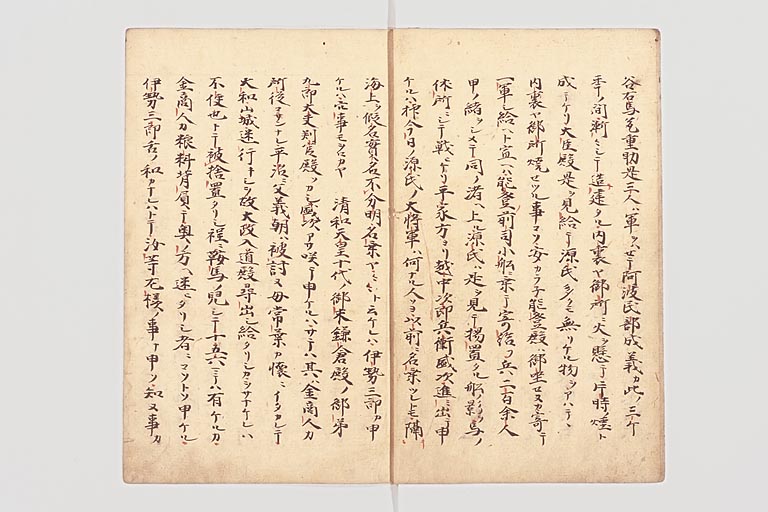 谷右馬允重助是三人ハ軍ヲハセテ阿波民部成義カ此ノ三ケ
年ノ間漸ミニシテ造建タル内裏ヤ御所ニ火ヲ懸テ片時ノ煙ト
成テケリ大臣殿是ヲ見給テ源氏多クモ無リケル物ヲアハテヽ
内裏ヤ御所焼セツル事コソ安カラ子能登殿ノ御坐ヌカ寄テ
一軍シ給ヘト宣ヘハ能登前司小船ニ乗テ宗ノ兵二百余人
甲ノ緒ヲシメテ同ノ渚ヘ上ル源氏ハ是ヲ見テ揚置タル船ノ影ヲ馬ノ
休所ニシテ戦ケリ平家方ヨリ越中次郎兵衛盛次進ミ出テ申
ケルハ抑今日ノ源氏ノ大将軍ハ何ナル人ソヨ以前ニ名乗ツレトモ隔
海上ヲ仮名実名不分明名乗ヤミムト云ケレハ伊勢三郎カ申
ケルハ 事モヲロカヤ 清和天皇十代ノ御末鎌倉殿ノ御弟
九郎大夫判官殿ヲカシ盛次アサ咲テ申ケルハサテハ其ハ金商人カ
所従コサンナレ平治ニ父義朝ハ被討ヌ母常葉カ懐ニイタカレテ
大和山城迷行キシヲ故大政入道殿尋出シ給タリシカヲサナケレハ
不便也トテ被捨置タリシ程ニ鞍馬ノ児シテ十五六マテハ有ケルカ
金商人カ粮料背負テ奥ノ方ヘ迷下タリシ者ニマソト申ケル
伊勢三郎舌ノ和カナレハトテ汝等カ様ノ事ナ申ソ知ヌ事カ